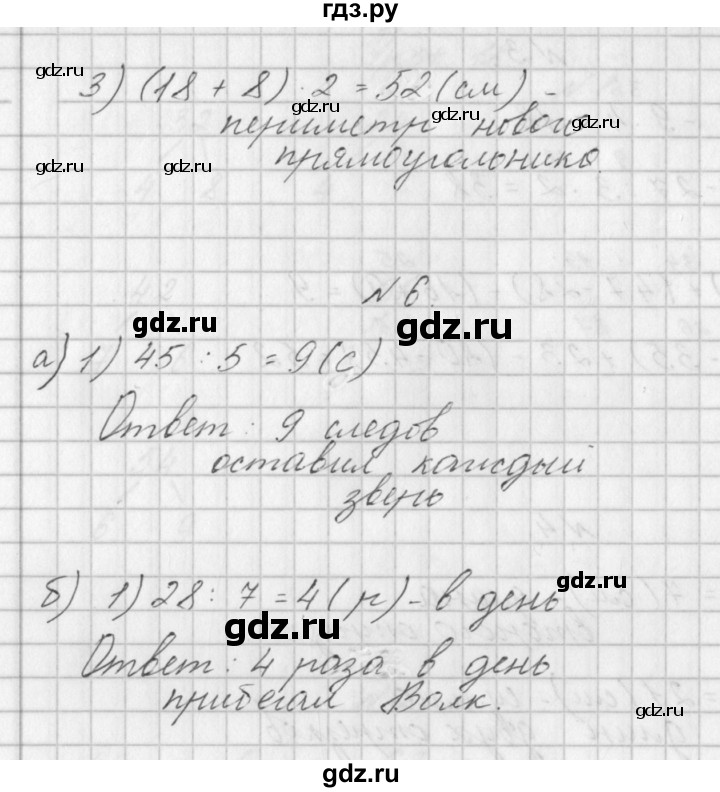 гдз.ру
3) (18 + 8) · 2 = 52 (см) -
периметр нового
прямоугольника.
N 6.
а) 1) 45 : 5 = 9 (с)
Ответ: 9 следов
оставил каждый
зверь
б) 1) 28 : 7 = 4 (р) - в день
Ответ: 4 раза в день
прибегал Волк.
gdz.ru
gdz.ru
gdz.ru
gdz.ru
gdz.ru
gdz.ru
gdz.ru
gdz.ru
gdz.ru
gdz.ru
gdz.ru